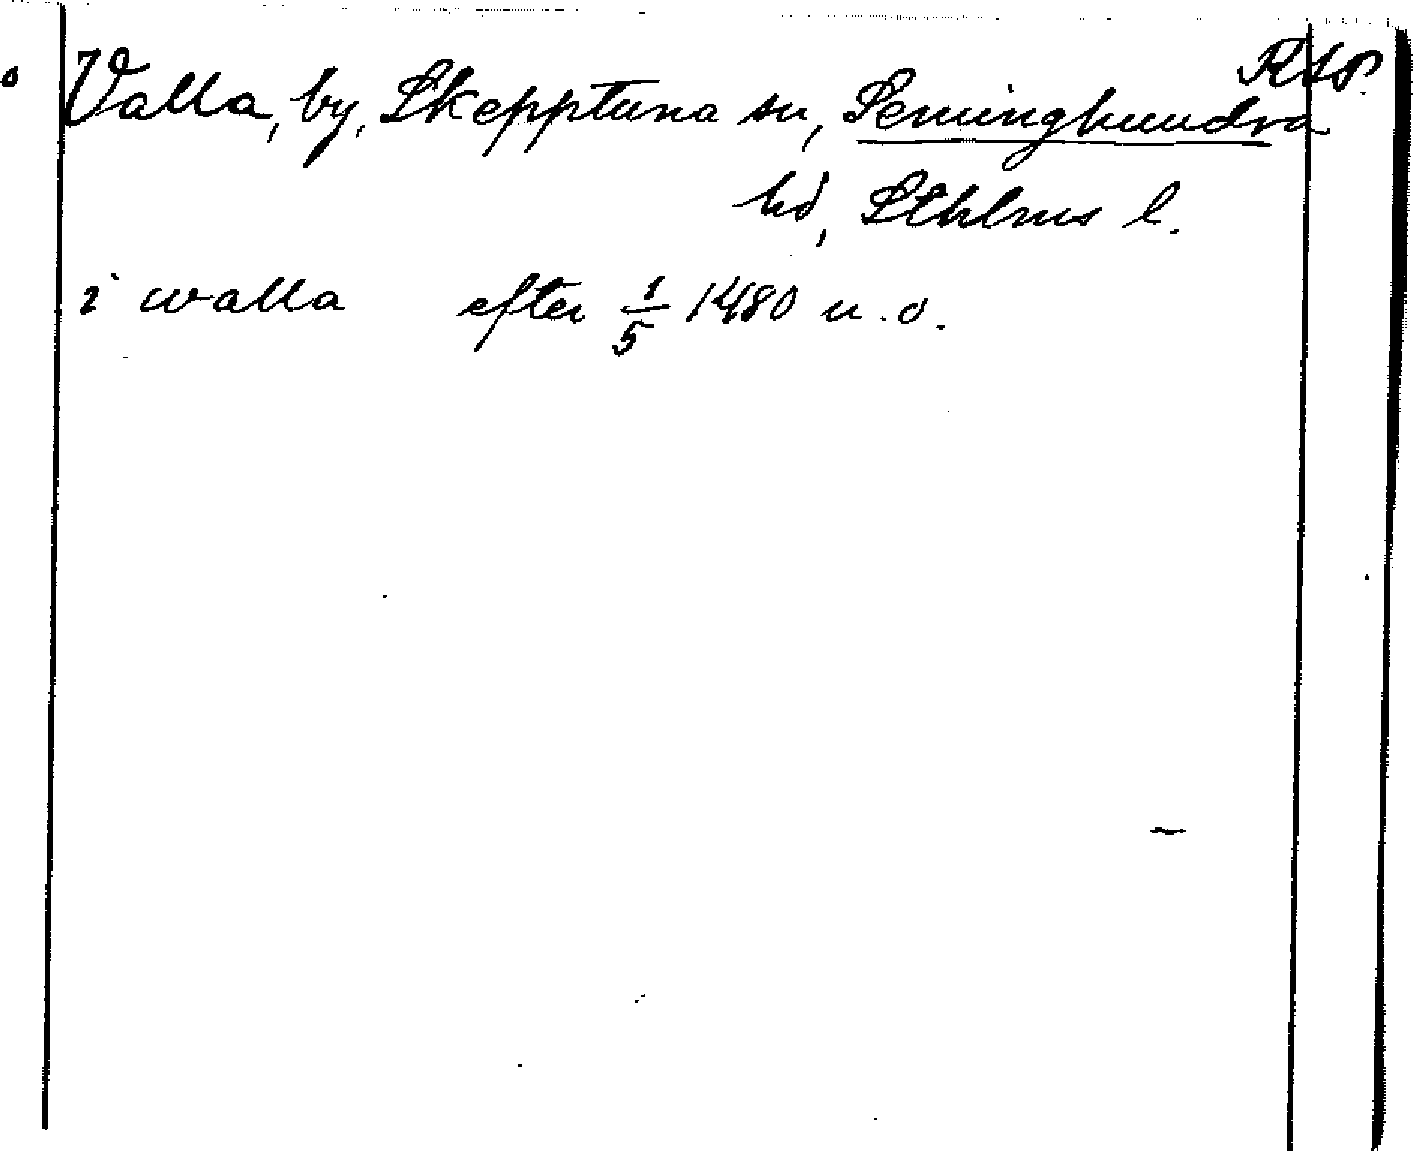 Valla, by, Skepptuna sn, Seminghundra
hd, Sthlms l.
i walla efter 1/5 1480 u.o.